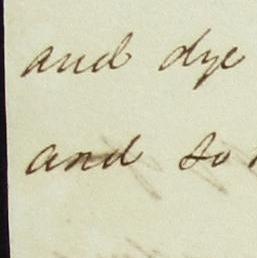 and dye
and so